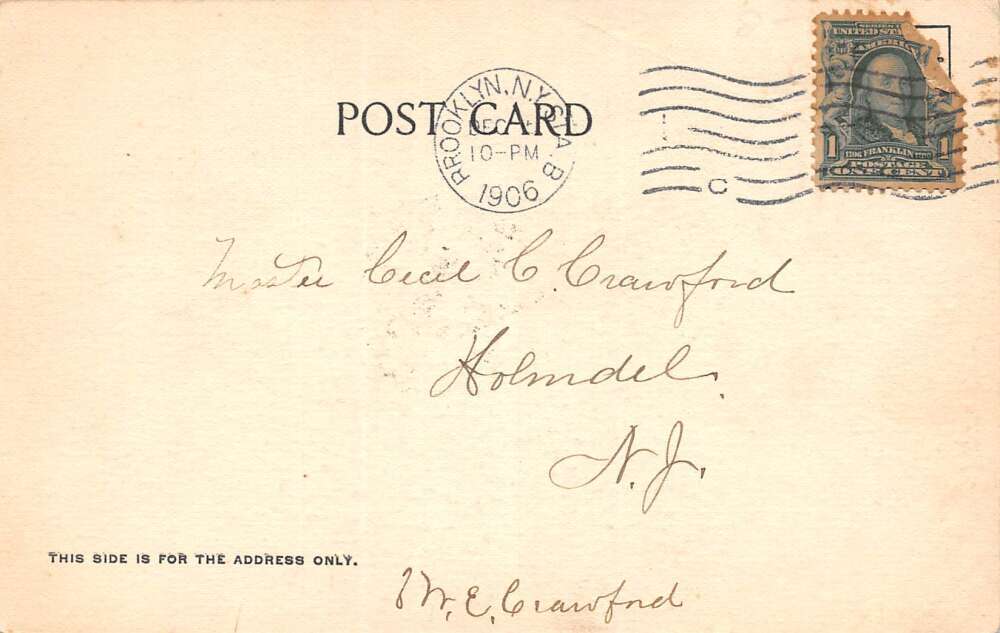 SERIES
UNITED STA
AMERICA
POST CARD
BROOKLYN, N.Y. STA. B
DEC
10-PM
1906
C
1 FRANKLIN 1
POSTAGE
ONE CENT
Master Cecil C. Crawford
Holmdel.
N.J.
THIS SIDE IS FOR THE ADDRESS ONLY.
W. E. Crawford